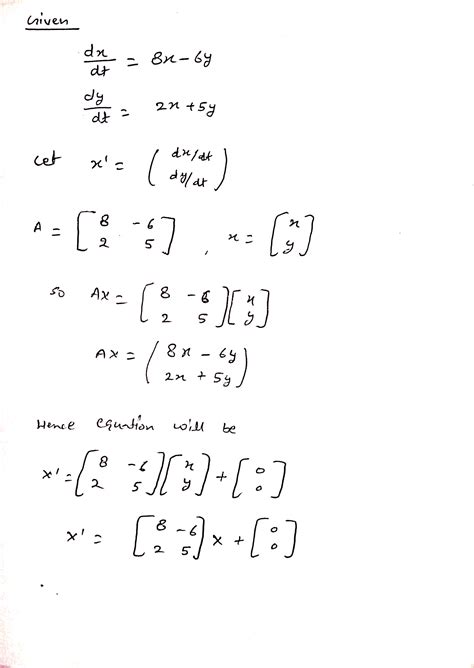 Given
dx/dt = 8x - 6y
dy/dt = 2x + 5y
Let x' = (dx/dt
dy/dt)
A = [8 -6
2 5] , x = [x
y]
so Ax = [8 -6
2 5][x
y]
Ax = (8x - 6y
2x + 5y)
Hence equation will be
x' = [8 -6
2 5][x
y] + [0
0]
x' = [8 -6
2 5]x + [0
0]